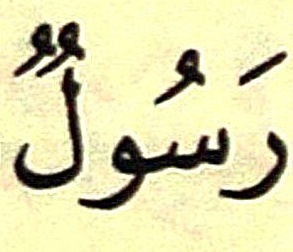 رَسُولٌ